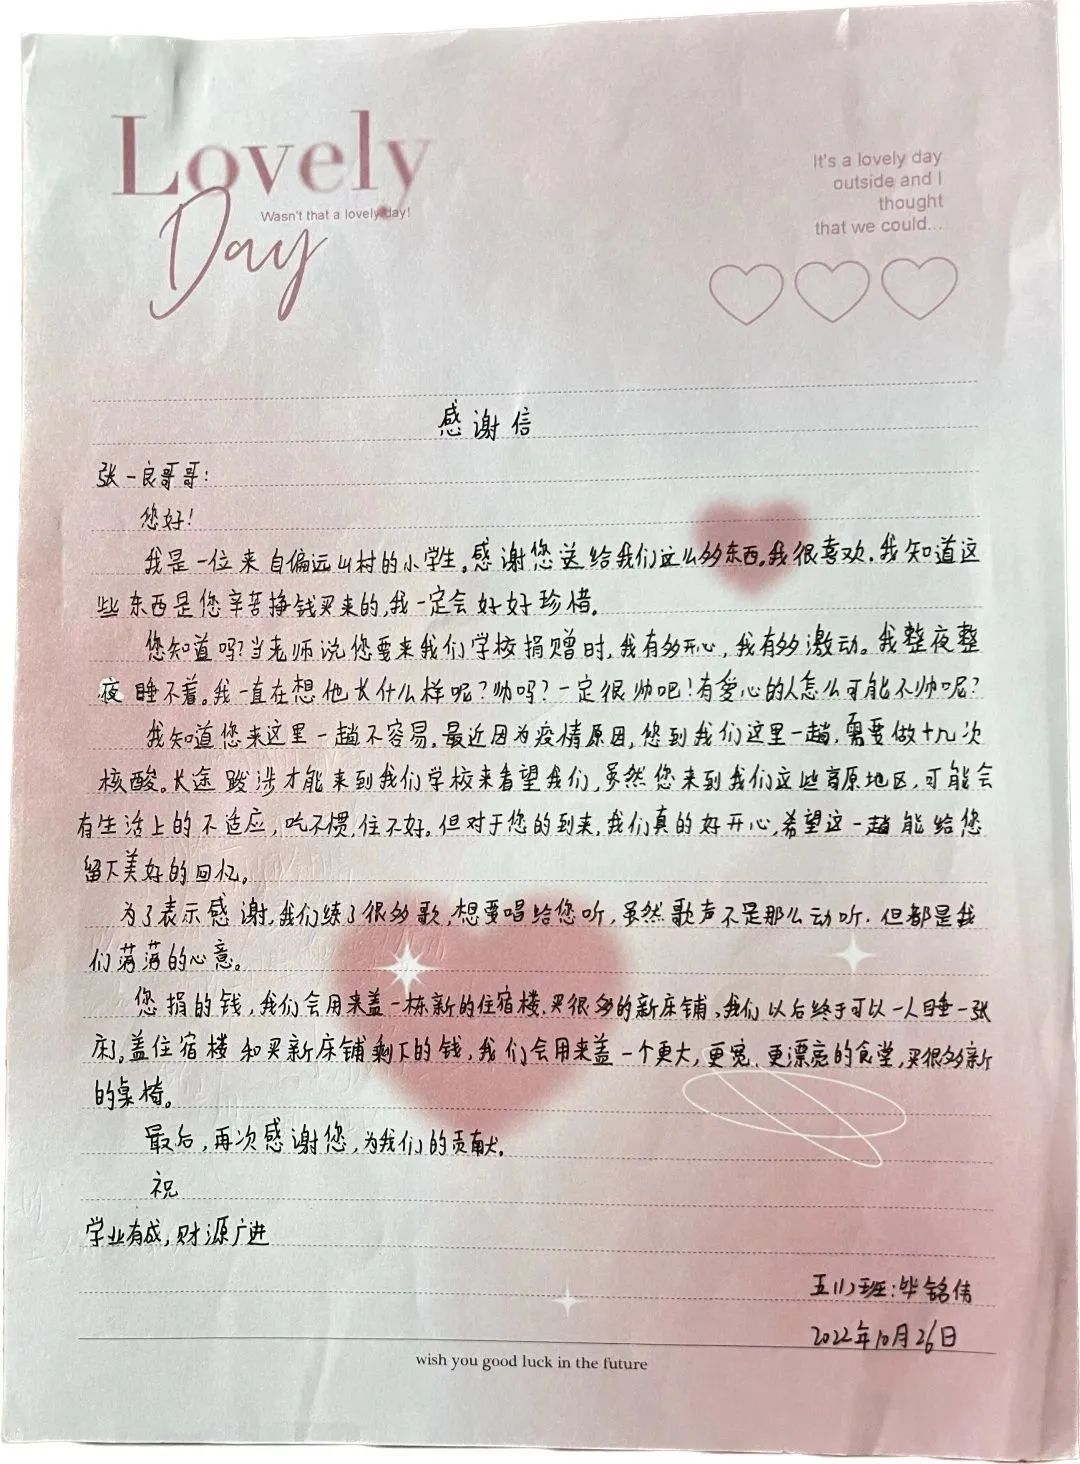 Lovely
Day
Wasn't that a lovely day!
It's a lovely day
outside and I
thought
that we could...
感谢信
张一良哥哥:
您好!
我是一位来自偏远山村的小学生。感谢您送给我们这么多东西。我很喜欢.我知道这
些东西是您辛苦挣钱买来的,我一定会好好珍惜。
您知道吗?当老师说您要来我们学校捐赠时,我有多开心,我有多激动。我整夜整
夜睡不着。我一直在想他长什么样呢?帅吗?一定很帅吧!有爱心的人怎么可能不帅呢?
我知道您来这里一趟不容易。最近因为疫情原因,您到我们这里一趟,需要做十几次
核酸。长途跋涉才能来到我们学校来看望我们,虽然您来到我们这些高原地区,可能会
有生活上的不适应,吃不惯,住不好。但对于您的到来,我们真的好开心,希望这一趟能给您
留下美好的回忆。
为了表示感谢,我们练了很多歌,想要唱给您听,虽然歌声不是那么动听.但都是我
们薄薄的心意。
您捐的钱,我们会用来盖一栋新的住宿楼,买很多的新床铺,我们以后终于可以一人睡一张
床了。盖住宿楼和买新床铺剩下的钱,我们会用来盖一个更大,更宽,更漂亮的食堂,买很多新
的桌椅。
最后,再次感谢您,为我们的贡献。
祝
学业有成,财源广进
五(1)班:毕铭伟
2022年10月26日
wish you good luck in the future